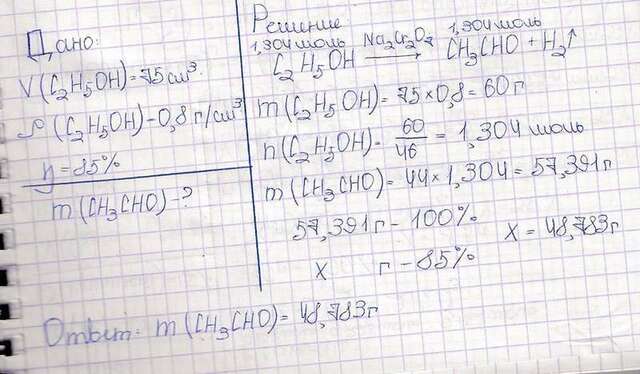 Дано:
V(C₂H₅OH)=75см³
ρ(C₂H₅OH)-0,8г/см³
η=85%
m(CH₃CHO)-?
Решение
1,304моль 1,304моль
C₂H₅OH Na₂Cr₂O₇→ CH₃CHO + H₂↑
m(C₂H₅OH)=75×0,8=60г
n(C₂H₅OH)=60/46=1,304 моль
m(CH₃CHO)=44×1,304=57,391г
57,391г-100%
x г-85% x=48,783г
Ответ: m(CH₃CHO)=48,783г